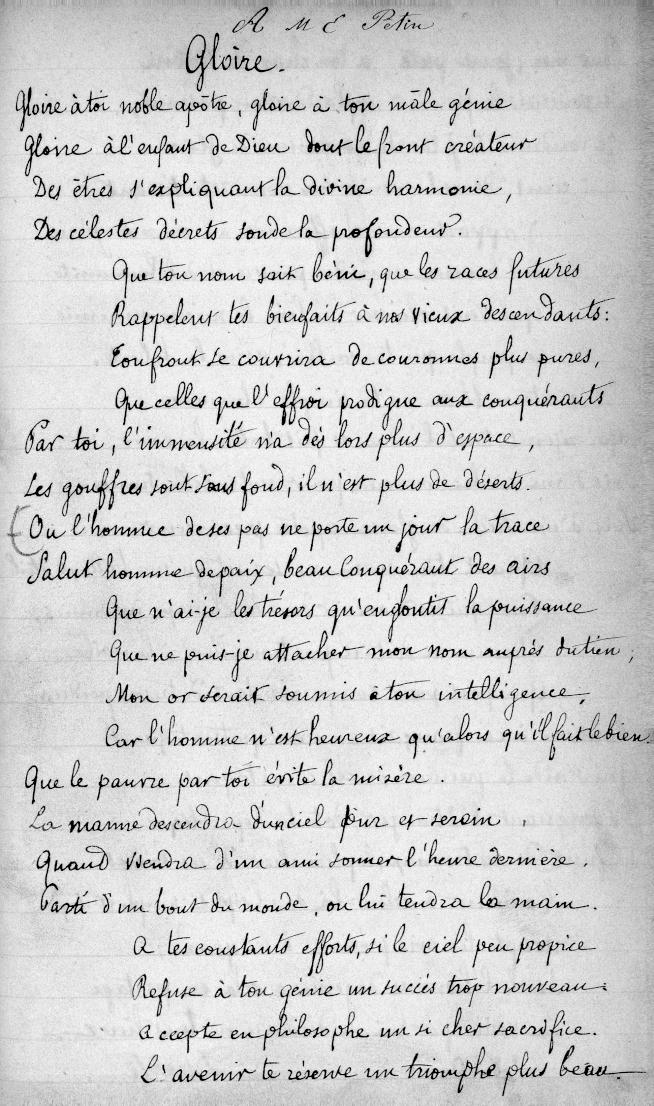 A M E Petin
Gloire.
Gloire à toi noble apôtre, gloire à ton mâle génie
Gloire à l'enfant de Dieu dont le front créateur
Des êtres s'expliquant la divine harmonie,
Des célestes décrets sonde la profondeur.
Que ton nom soit béni, que les races futures
Rappelent tes bienfaits à nos vieux descendants:
Ton front se couvrira de couronnes plus pures,
Que celles que l'effroi prodigue aux conquérants
Par toi, l'immensité n'a dès lors plus d'espace,
Les gouffres sont sans fond, il n'est plus de déserts.
Où l'homme de ses pas ne porte un jour la trace
Salut homme de paix, beau Conquérant des airs
Que n'ai-je les trésors qu'engloutit la puissance
Que ne puis-je attacher mon nom auprès du tien;
Mon or serait soumis à ton intelligence,
Car l'homme n'est heureux qu'alors qu'il fait le bien.
Que le pauvre par toi évite la misère.
La manne descendra d'un ciel pur et serein.
Quand viendra d'un ami sonner l'heure dernière.
Parti d'un bout du monde, on lui tendra la main.
A tes constants efforts, si le ciel peu propice
Refuse à ton génie un succès trop nouveau:
Accepte en philosophe un si cher sacrifice.
L'avenir te réserve un triomphe plus beau